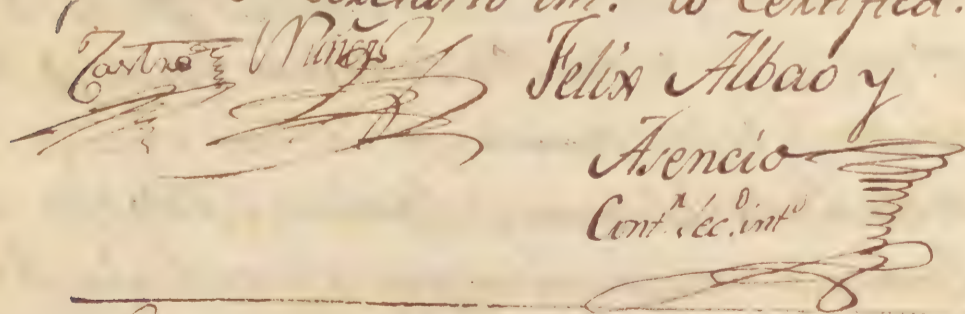 int.º lo Certifica.
Castro Muñoz Felix Albao y
Asencio
Cont.r Sec.º intº